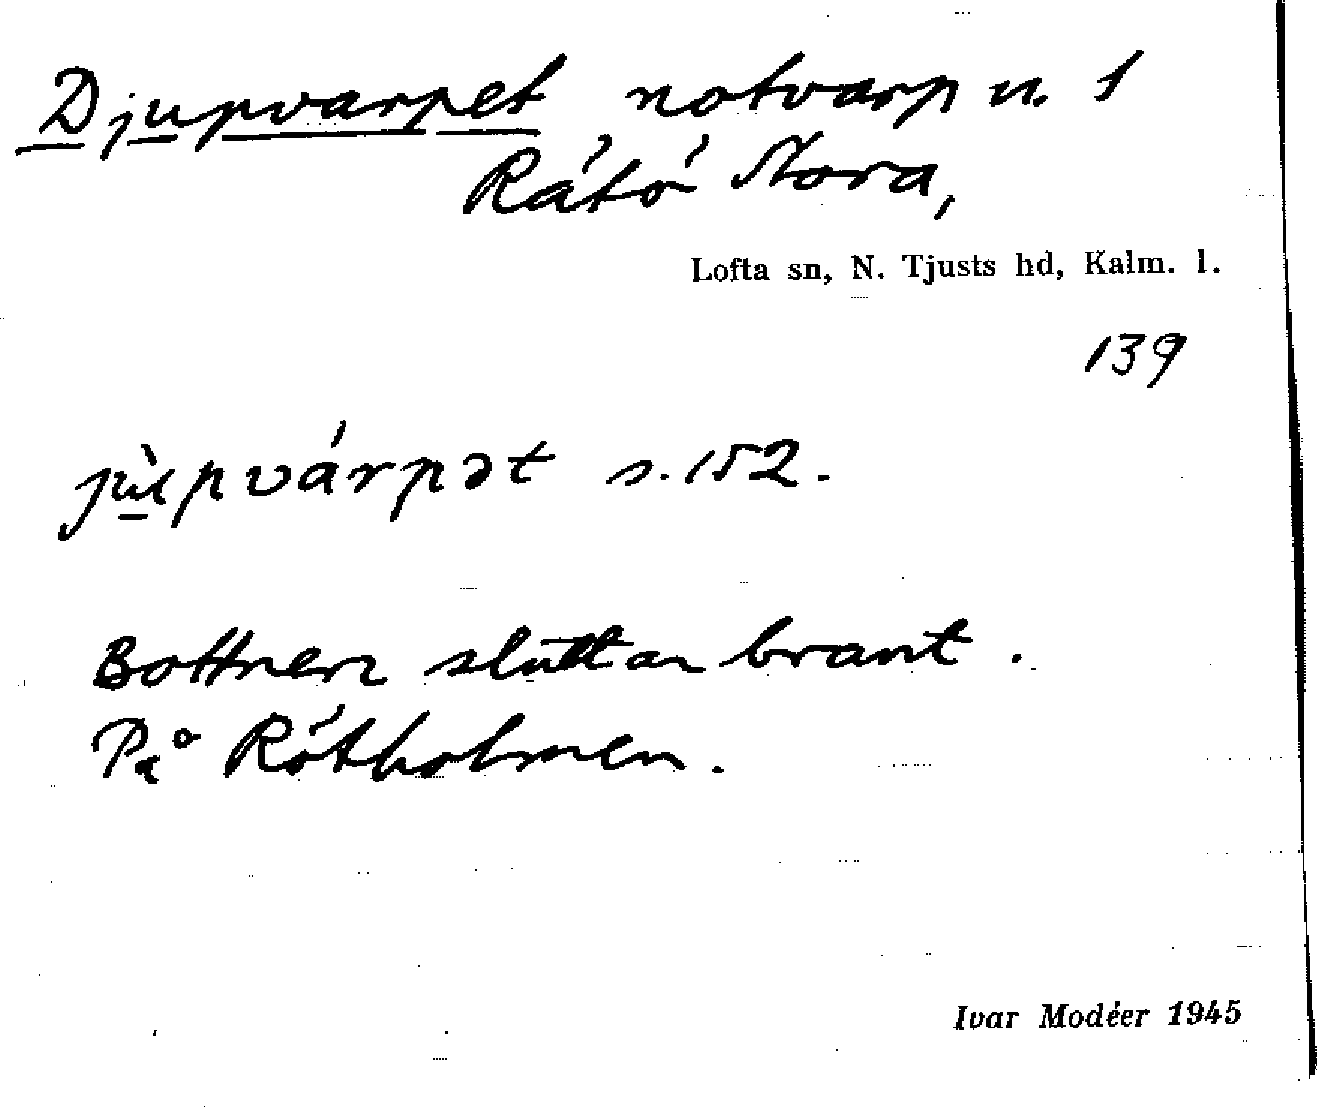 Djupvarpet notvarp n. 1
Rátó Stora,
Lofta sn, N. Tjusts hd, Kalm. l.
139
s. 152.
Bottnen sluttar brant.
På Rótholmen.
Ivar Modéer 1945